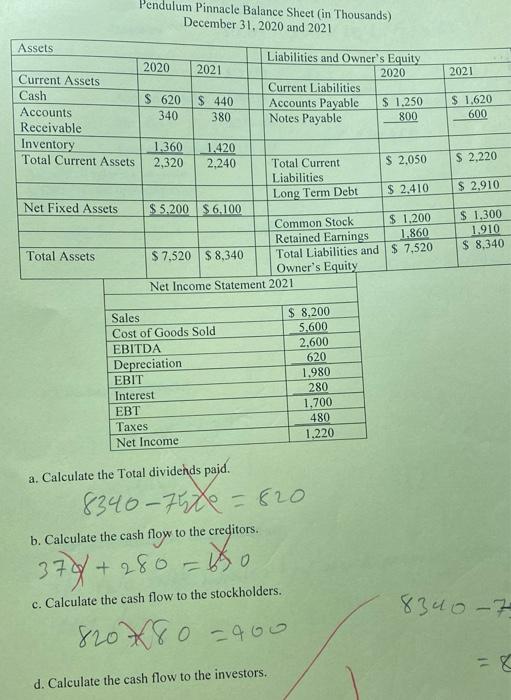 Pendulum Pinnacle Balance Sheet (in Thousands)
December 31, 2020 and 2021
Assets
Liabilities and Owner's Equity
2020 2021 2020 2021
Current Assets Current Liabilities
Cash $ 620 $ 440 Accounts Payable $ 1,250 $ 1,620
Accounts Receivable 340 380 Notes Payable 800 600
Inventory 1,360 1,420
Total Current Assets 2,320 2,240 Total Current Liabilities $ 2,050 $ 2,220
Long Term Debt $ 2,410 $ 2,910
Net Fixed Assets $ 5,200 $ 6,100
Common Stock $ 1,200 $ 1,300
Retained Earnings 1,860 1,910
Total Assets $ 7,520 $ 8,340 Total Liabilities and Owner's Equity $ 7,520 $ 8,340
Net Income Statement 2021
Sales $ 8,200
Cost of Goods Sold 5,600
EBITDA 2,600
Depreciation 620
EBIT 1,980
Interest 280
EBT 1,700
Taxes 480
Net Income 1,220
a. Calculate the Total dividends paid.
8340 - 7520 = 820
b. Calculate the cash flow to the creditors.
370 + 280 = 650
c. Calculate the cash flow to the stockholders.
8340 - 7
820 80 = 900
= 8
d. Calculate the cash flow to the investors.